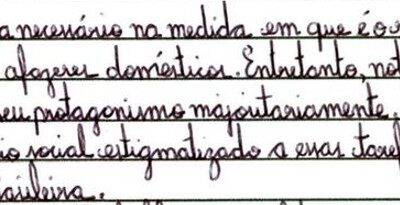 a necessário na medida em que é o
afazeres domésticos. Entretanto, not
eu protagonismo majoritariamente.
io social estigmatizado a essas taref
asileira.